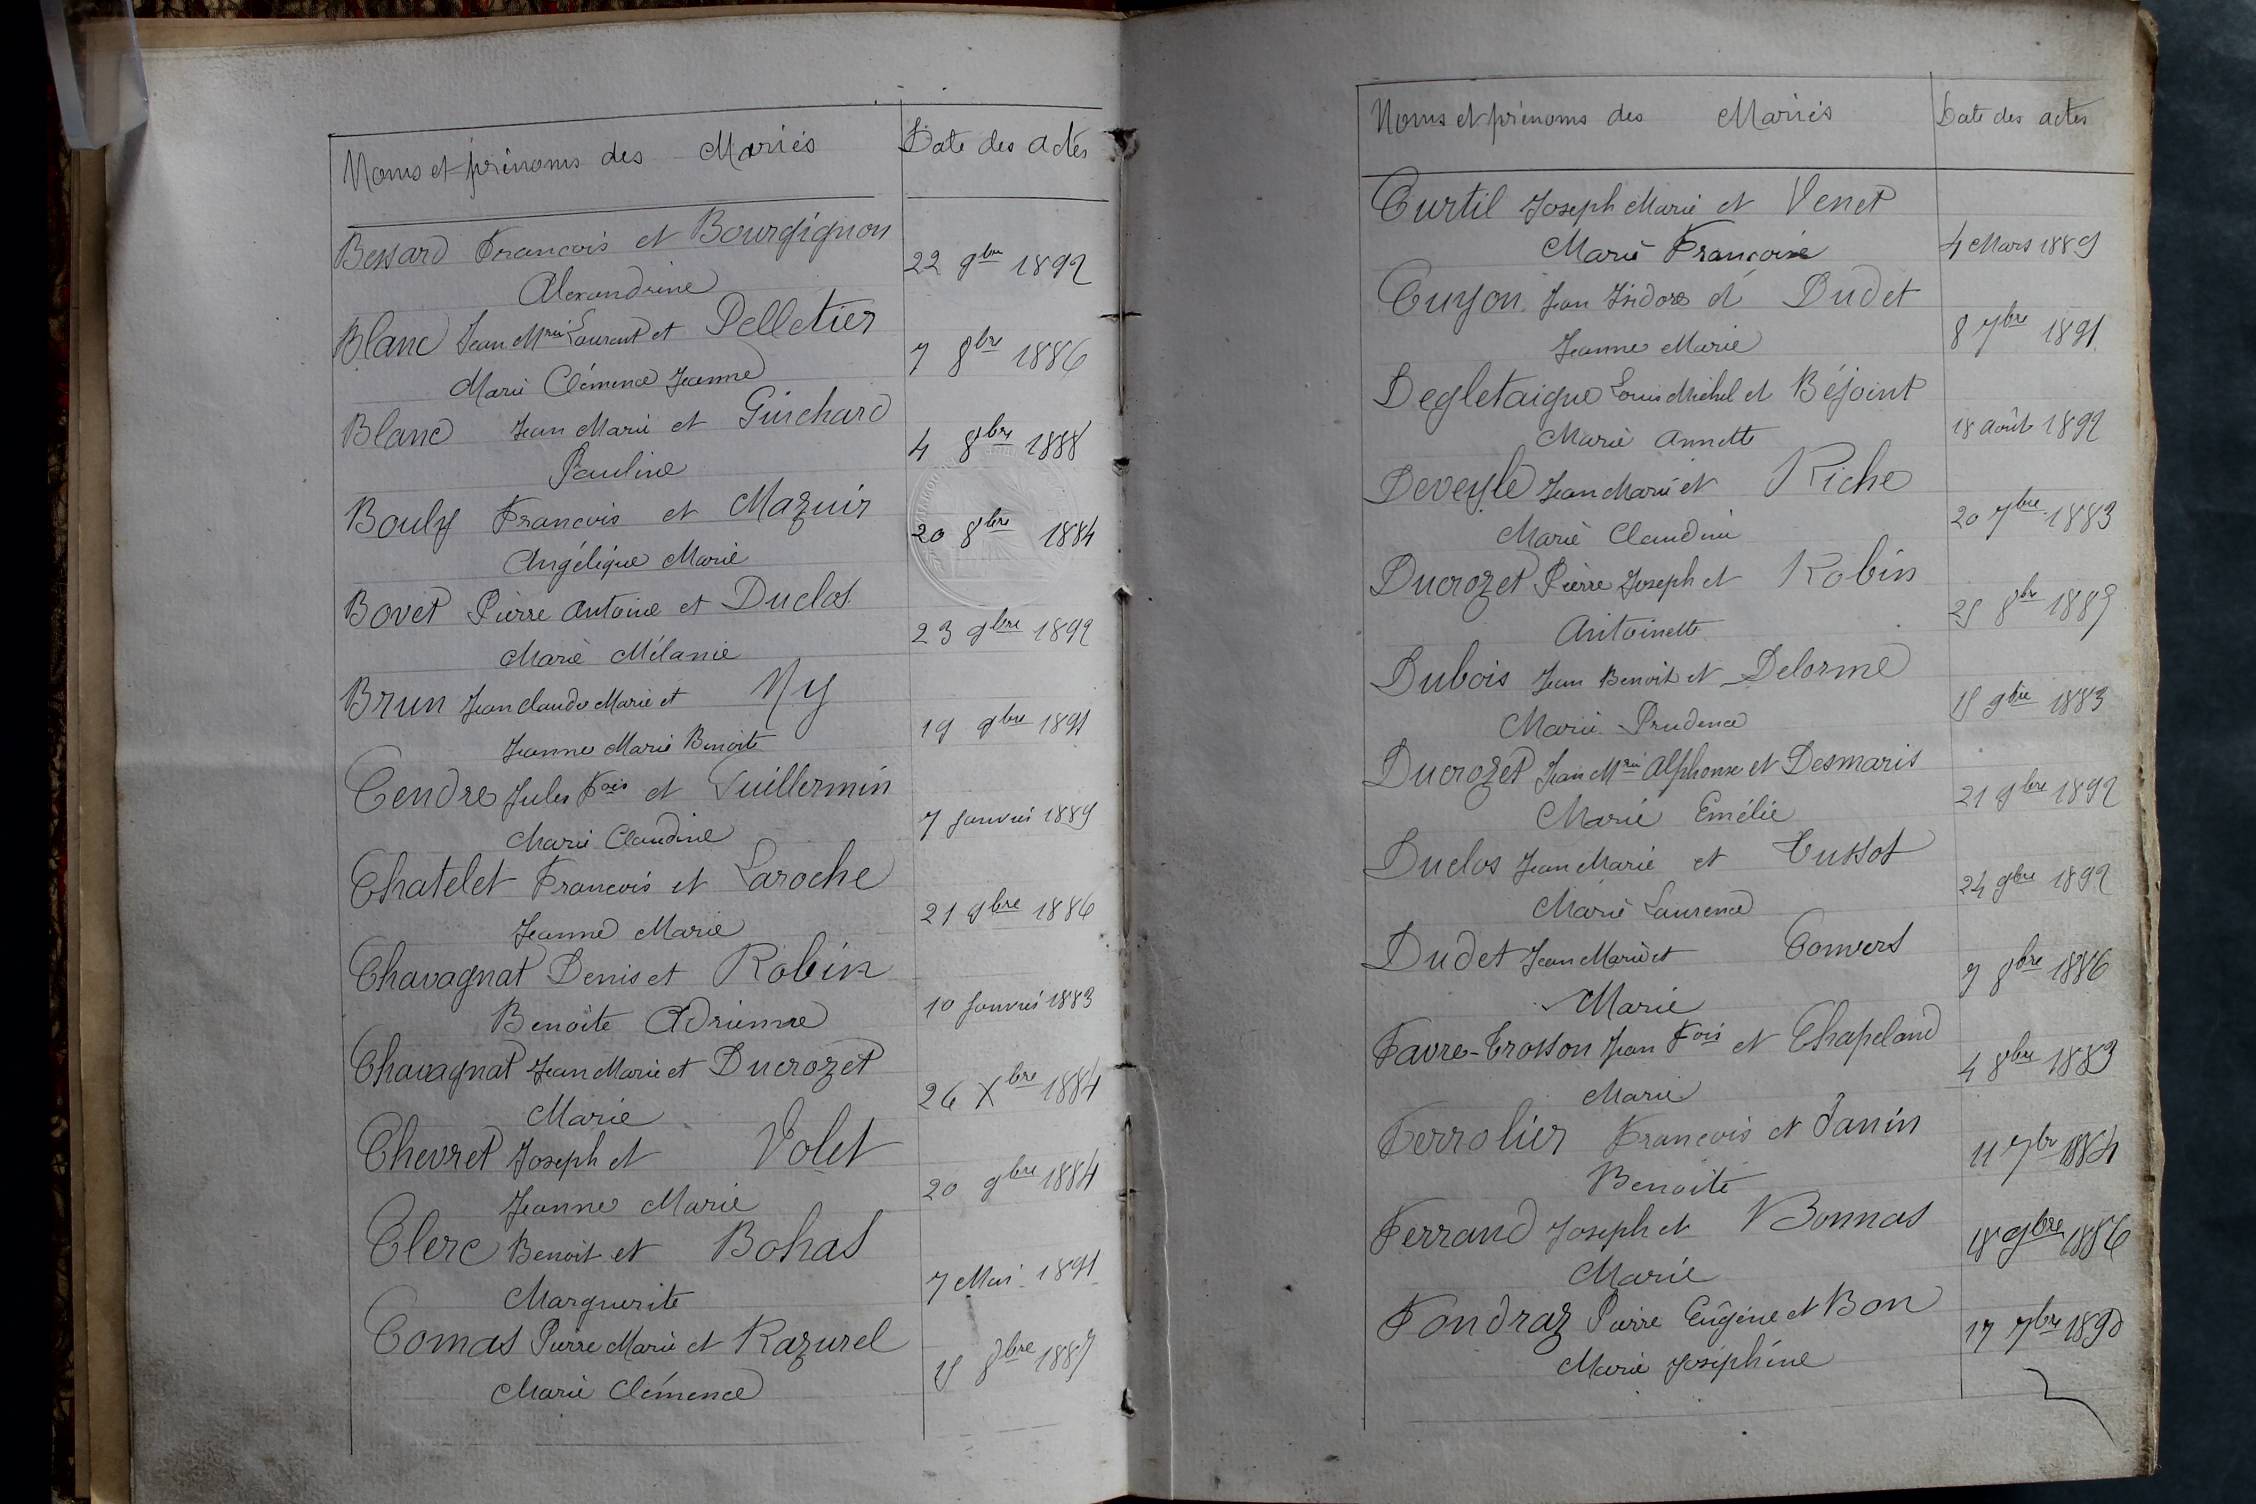 Noms et prénoms des Mariés Date des actes
Bessard François et Bourgignon
Alexandrine 22 9bre 1892
Blanc Jean Mrie Laurent et Pelletier
Marie Clémence Jeanne 7 8bre 1886
Blanc Jean Marie et Guichard
Pauline 4 8bre 1888
Bouly François et Mazuir
Angélique Marie 20 8bre 1884
Bovet Pierre Antoine et Duclos
Marie Mélanie 23 9bre 1892
Brun Jean Claude Marie et Ny
Jeanne Marie Benoite 19 9bre 1891
Cendre Jules Fois et Guillermin
Marie Claudine 7 Janvier 1889
Chatelet François et Laroche
Jeanne Marie 21 9bre 1886
Chavagnat Denis et Robin
Benoite Adrienne 10 Janvier 1883
Chavagnat Jean Marie et Ducrozet
Marie 26 Xbre 1884
Chevret Joseph et Volet
Jeanne Marie 20 9bre 1884
Clerc Benoit et Bohas
Marguerite 7 Mai 1891
Comas Pierre Marie et Razurel
Marie Clémence 8bre
Noms et prénoms des Mariés Date des actes
Curtil Joseph Marie et Venet
Marie Françoise 4 Mars 1889
Cuyon Jean Isidore et Dudet
Jeanne Marie 8 7bre 1891
Degletaigne Louis Michel et Béjoint
Marie Annette 18 Août 1892
Deveyle Jean Marie et Riche
Marie Claudine 20 7bre 1883
Ducrozet Pierre Joseph et Robin
Antoinette 25 8bre 1889
Dubois Jean Benoit et Delorme
Marie Prudence 15 9bre 1883
Ducrozet Jean Mrie Alphonse et Desmaris
Marie Emélie 21 9bre 1892
Duclos Jean Marie et Tussot
Marie Laurence 24 9bre 1892
Dudet Jean Marie et Convers
Marie 7 8bre 1886
Favre-Trosson Jean Fois et Chapeland
Marie 4 8bre 1883
Ferrolier François et Janin
Benoite 11 7bre 1884
Ferrand Joseph et Bonnas
Marie 18 9bre 1886
Fondraz Pierre Eugène et Bon
Marie Joséphine 17 7bre 1890